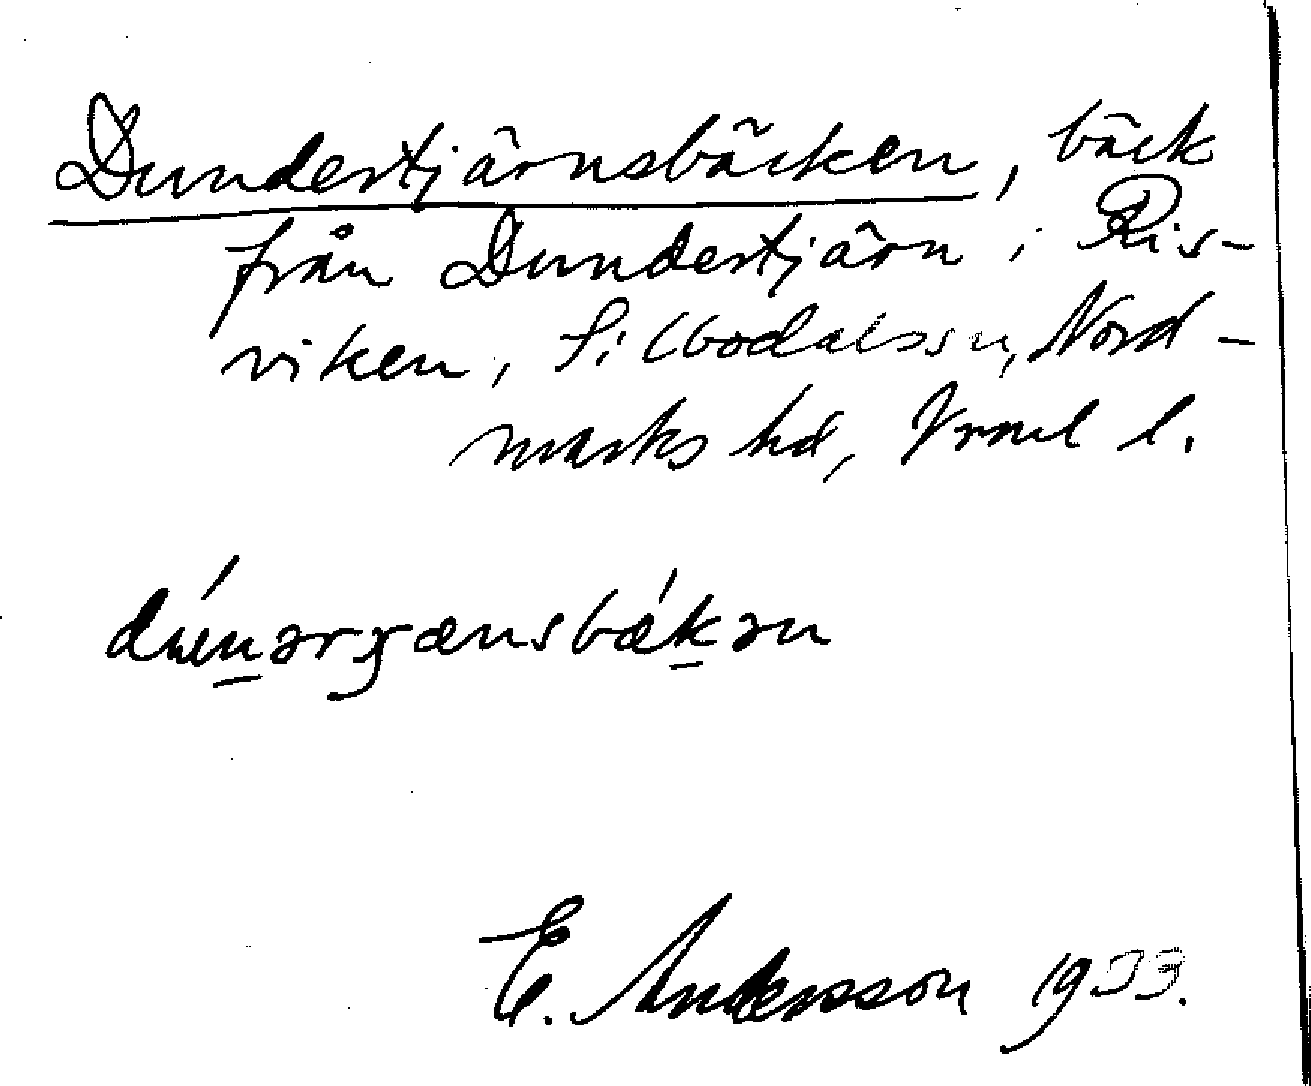 Dundertjärnsbäcken, bäck
från Dundertjärn i Ris-
viken, Silbodals sn, Nord-
marks hd, Vrml l.
E. Andersson 1933.